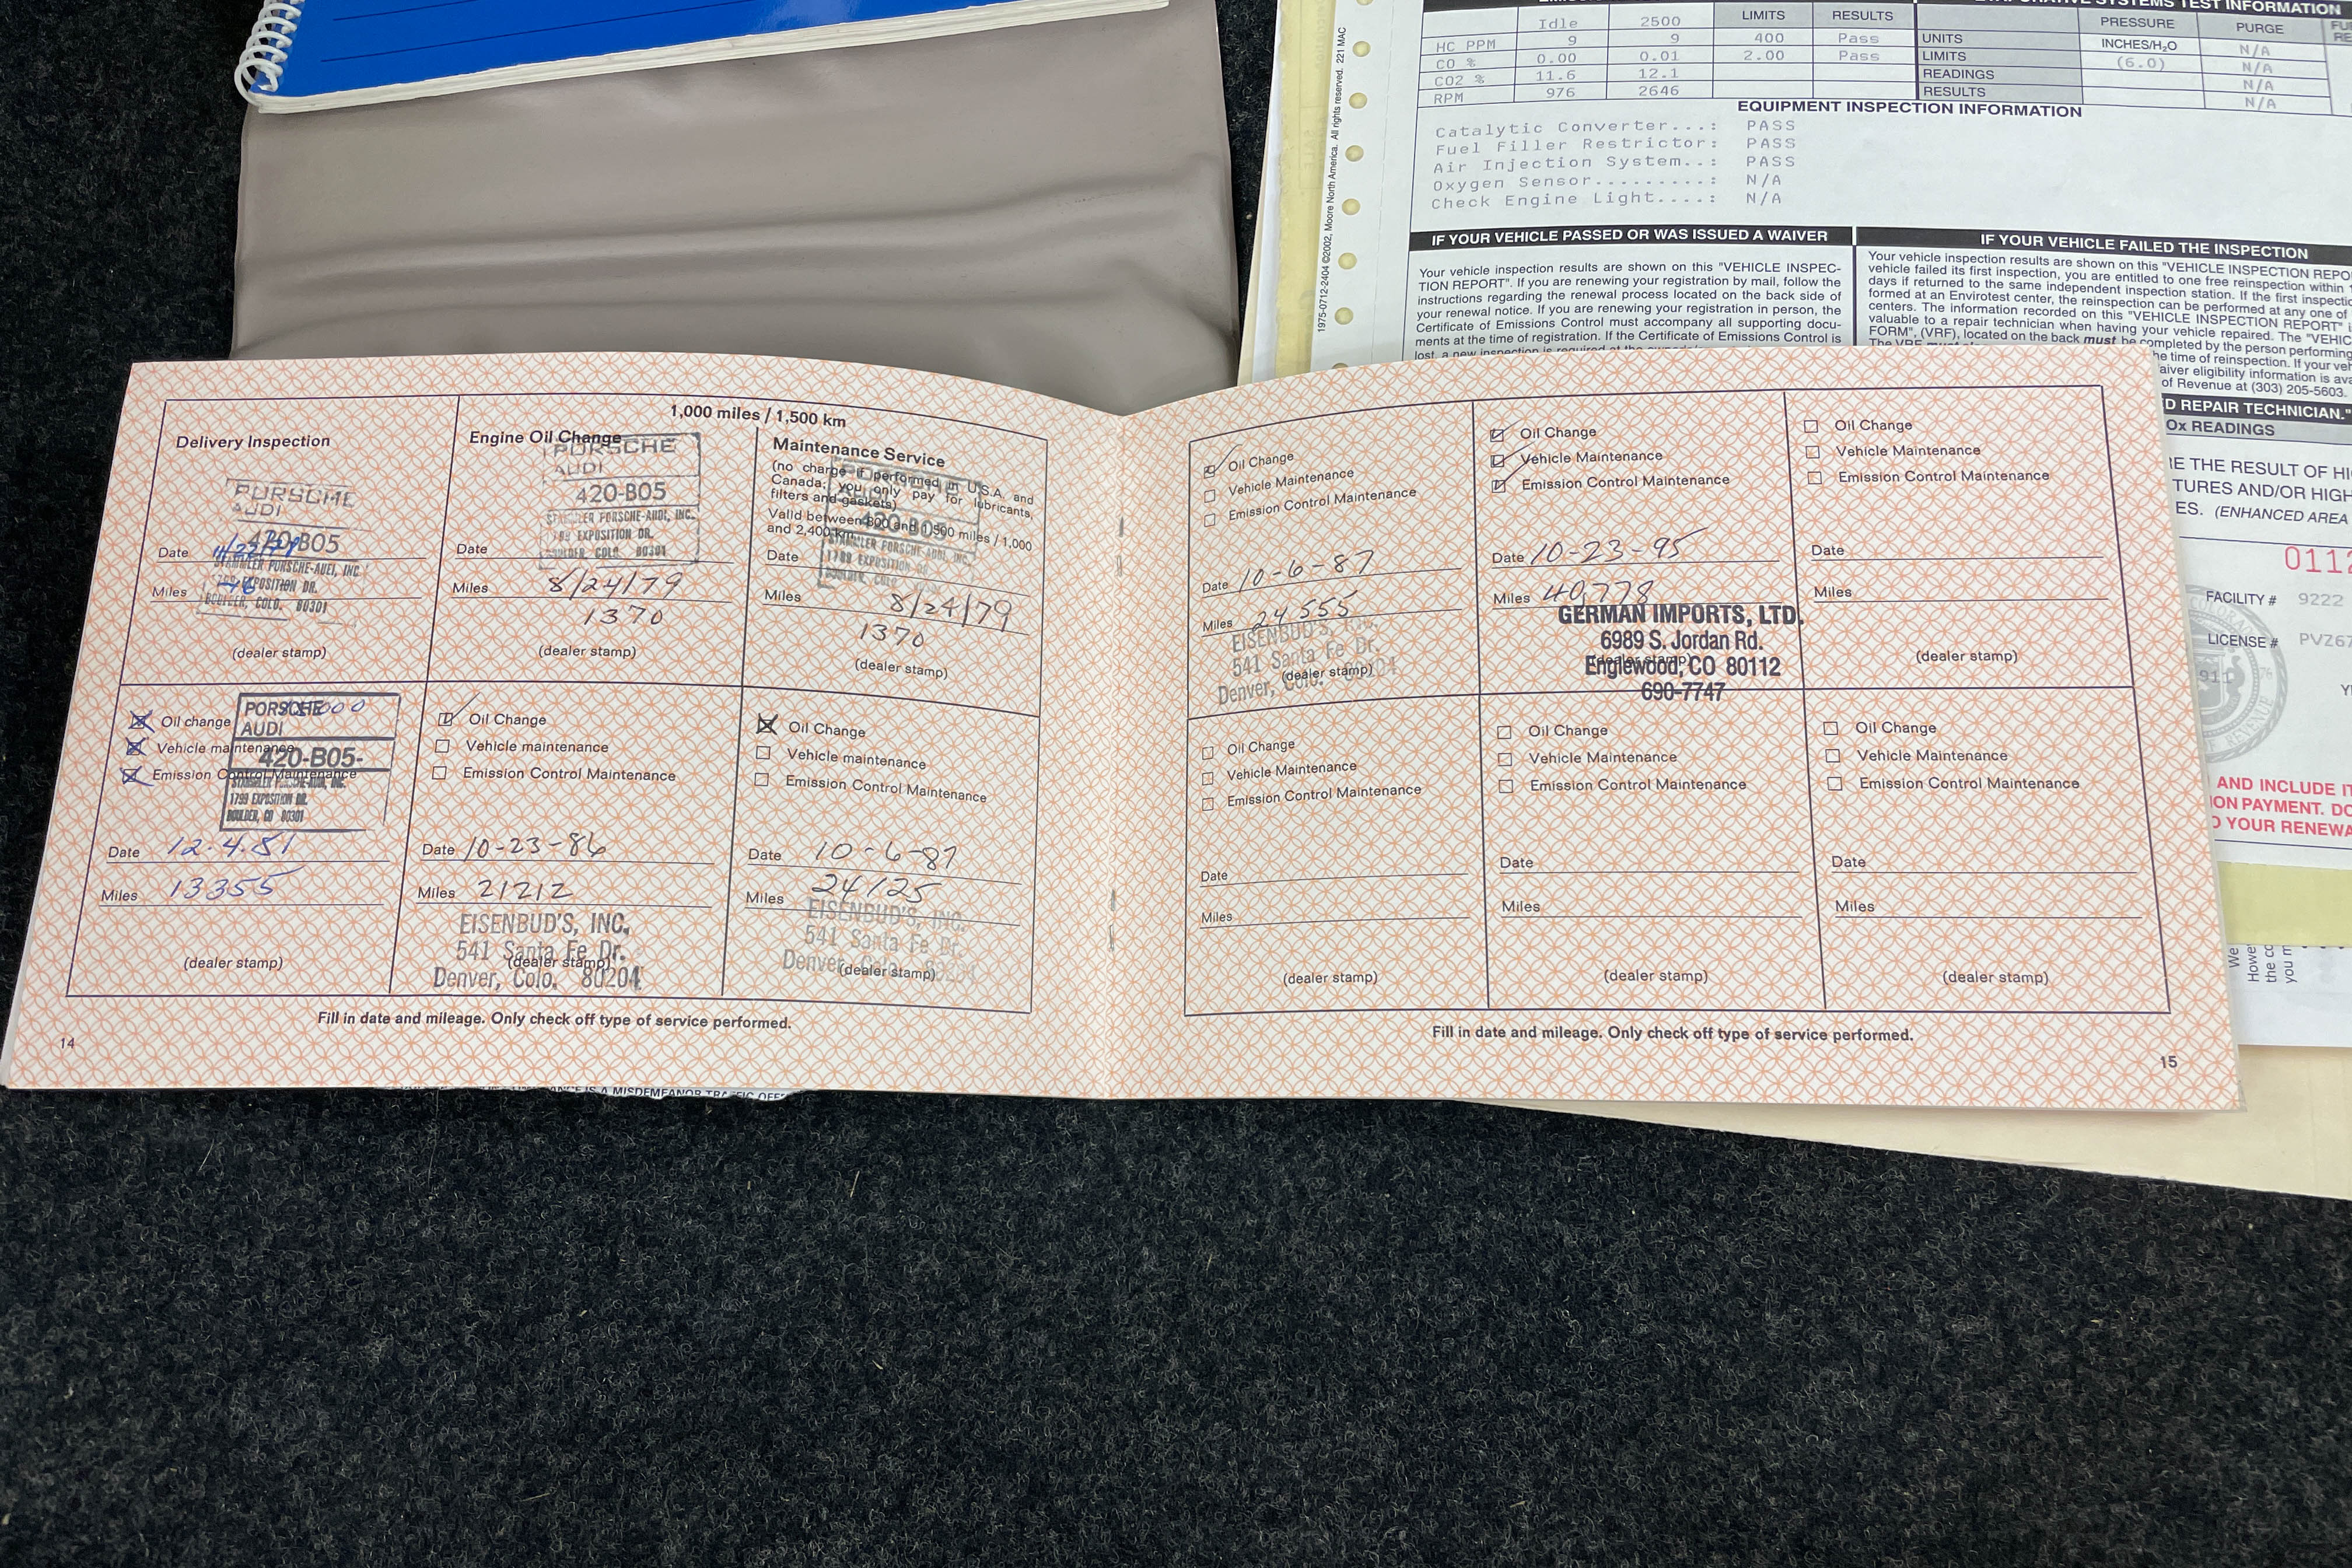 Idle 2500 LIMITS RESULTS
HC PPM 9 9 400 Pass
CO % 0.00 0.01 2.00 Pass
CO2 % 11.6 12.1
RPM 976 2646
SYSTEMS TEST INFORMATION
PRESSURE PURGE
UNITS INCHES/H₂O N/A
LIMITS (6.0) N/A
READINGS N/A
RESULTS N/A
EQUIPMENT INSPECTION INFORMATION
Catalytic Converter...: PASS
Fuel Filler Restrictor: PASS
Air Injection System..: PASS
Oxygen Sensor.........: N/A
Check Engine Light....: N/A
1975-0712-2404 ©2002, Moore North America. All rights reserved. 221 MAC
IF YOUR VEHICLE PASSED OR WAS ISSUED A WAIVER
Your vehicle inspection results are shown on this "VEHICLE INSPEC-
TION REPORT". If you are renewing your registration by mail, follow the
instructions regarding the renewal process located on the back side of
your renewal notice. If you are renewing your registration in person, the
Certificate of Emissions Control must accompany all supporting docu-
ments at the time of registration. If the Certificate of Emissions Control is
IF YOUR VEHICLE FAILED THE INSPECTION
Your vehicle inspection results are shown on this "VEHICLE INSPECTION REPO
vehicle failed its first inspection, you are entitled to one free reinspection within
days if returned to the same independent inspection station. If the first inspectio
formed at an Envirotest center, the reinspection can be performed at any one of
centers. The information recorded on this "VEHICLE INSPECTION REPORT" i
valuable to a repair technician when having your vehicle repaired. The "VEHIC
FORM", (VRF), located on the back must be completed by the person performing
he time of reinspection. If your veh
aiver eligibility information is ava
of Revenue at (303) 205-5603.
D REPAIR TECHNICIAN."
Ox READINGS
E THE RESULT OF HI
TURES AND/OR HIGH
ES. (ENHANCED AREA
0112
FACILITY # 9222
LICENSE # PVZ67
AND INCLUDE IT
ON PAYMENT. DO
O YOUR RENEWA
We
Howe
the co
you m
1,000 miles / 1,500 km
Delivery Inspection
PORSCHE
AUDI
420-B05
Date
STAMMLER PORSCHE-AUDI, INC.
1799 EXPOSITION DR.
Miles
BOULDER, COLO. 80301
(dealer stamp)
Engine Oil Change
PORSCHE
AUDI
420-B05
STAMMLER PORSCHE-AUDI, INC.
1799 EXPOSITION DR.
BOULDER, COLO. 80301
Date
Miles 8/24/79
1370
(dealer stamp)
Maintenance Service
(no charge if performed in U.S.A. and
Canada; you only pay for lubricants,
filters and gaskets)
Valid between 800 and 1,500 miles / 1,000
and 2,400 km
420-B05
STAMMLER PORSCHE-AUDI, INC.
1799 EXPOSITION DR.
BOULDER, COLO.
Date
Miles 8/24/79
1370
(dealer stamp)
Oil change
Vehicle maintenance
Emission Control Maintenance
PORSCHE
AUDI
420-B05-
STAMMLER PORSCHE-AUDI, INC.
1799 EXPOSITION DR.
BOULDER, CO 80301
Date 12.4.81
Miles 13355
(dealer stamp)
Oil Change
Vehicle maintenance
Emission Control Maintenance
Date 10-23-86
Miles 21212
EISENBUD'S, INC.
541 Santa Fe Dr.
(dealer stamp)
Denver, Colo. 80204
Oil Change
Vehicle maintenance
Emission Control Maintenance
Date 10-6-87
Miles 24125
EISENBUD'S, INC.
541 Santa Fe Dr.
Denver, Colo. 80204
(dealer stamp)
Fill in date and mileage. Only check off type of service performed.
14
Oil Change
Vehicle Maintenance
Emission Control Maintenance
Date 10-6-87
Miles 24555
EISENBUD'S, INC.
541 Santa Fe Dr.
(dealer stamp)
Denver, Colo. 80204
Oil Change
Vehicle Maintenance
Emission Control Maintenance
Date 10-23-95
Miles 40,778
GERMAN IMPORTS, LTD.
6989 S. Jordan Rd.
(dealer stamp)
Englewood, CO 80112
690-7747
Oil Change
Vehicle Maintenance
Emission Control Maintenance
Date
Miles
(dealer stamp)
Oil Change
Vehicle Maintenance
Emission Control Maintenance
Date
Miles
(dealer stamp)
Oil Change
Vehicle Maintenance
Emission Control Maintenance
Date
Miles
(dealer stamp)
Oil Change
Vehicle Maintenance
Emission Control Maintenance
Date
Miles
(dealer stamp)
Fill in date and mileage. Only check off type of service performed.
15
IS A MISDEMEANOR TRAFFIC OFF